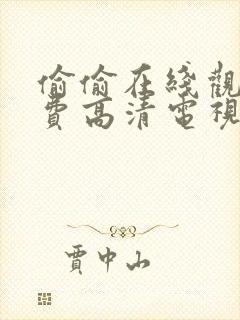 偷偷在綫觀
費高清電視
賈中山